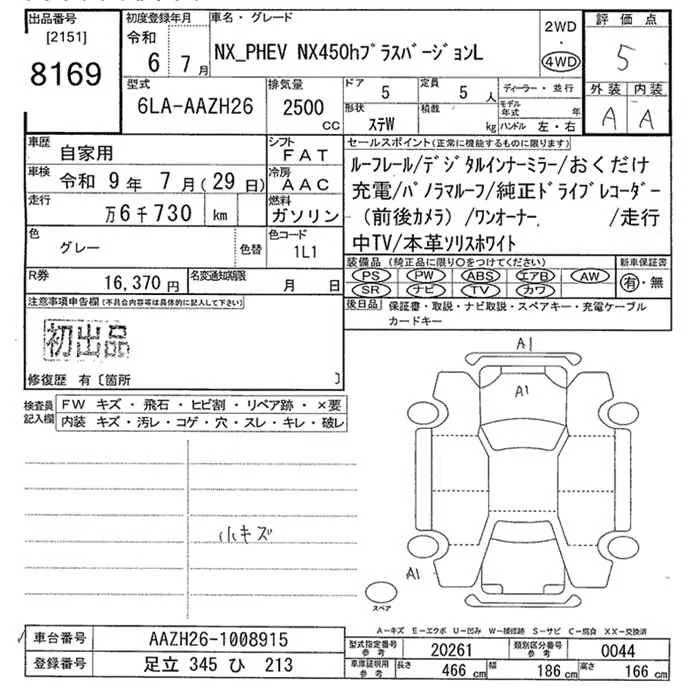 出品番号
[2151]
8169
初度登録年月
令和 6 7 月
車名・グレード
NX_PHEV NX450hプラスバージョンL
2WD
・
4WD
評価点
5
外装 内装
A A
型式
6LA-AAZH26
排気量
2500 CC
ドア 5
定員 5 人
形状 ステW
積載 kg
ディーラー・並行
モデル年式 年
ハンドル 左・右
車歴 自家用
シフト FAT
車検 令和 9年 7月(29日)
冷房 AAC
走行 万6千730 km
燃料 ガソリン
色 グレー 色替
色コード 1L1
R券 16,370円
名変通知期限 月 日
セールスポイント(正常に機能するものに限ります)
ルーフレール/デジタルインナーミラー/おくだけ
充電/パノラマルーフ/純正ドライブレコーダー
(前後カメラ)/ワンオーナー /走行
中TV/本革ソリスホワイト
装備品(純正品に限り○をつけてください)
PS PW ABS エアB AW
SR ナビ TV カワ
新車保証書
有・無
後日品 保証書・取説・ナビ取説・スペアキー・充電ケーブル
カードキー
注意事項申告欄(不具合内容等は具体的に記入して下さい)
初出品
修復歴 有〔箇所 〕
検査員記入欄
FW キズ・飛石・ヒビ割・リペア跡・×要
内装 キズ・汚レ・コゲ・穴・スレ・キレ・破レ
小キズ
A1
A1
A1
スペア
A-キズ E-エクボ U-凹み W-補修跡 S-サビ C-腐食 XX-交換済
車台番号 AAZH26-1008915
登録番号 足立 345 ひ 213
型式指定番号 参考 20261
類別区分番号 参考 0044
車庫証明用 参考 長さ 466 cm 幅 186 cm 高さ 166 cm